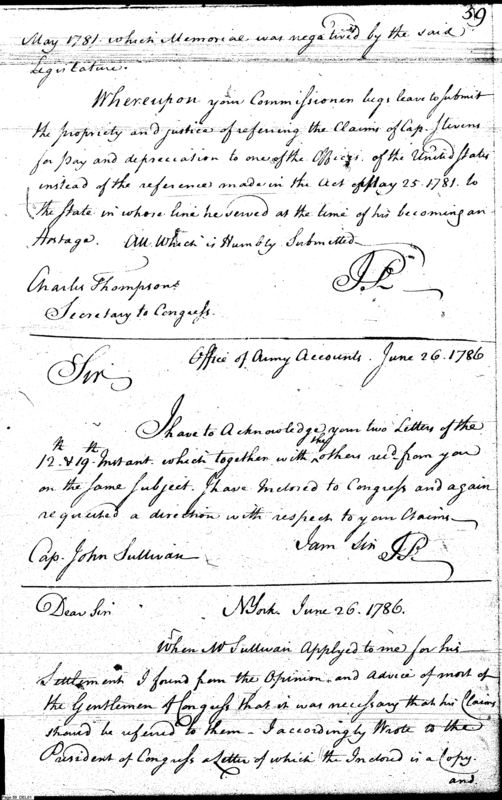 59
May 1781. which Memorial was negatived by the said
Legislature.
Whereupon your Commissioner begs leave to submit
the propriety and justice of referring the Claims of Cap. Stevens
for Pay and depreciation to one of the Offices of the United States
instead of the reference made in the Act of May 25. 1781. to
the State in whose line he served at the time of his becoming an
Hostage. All Which is Humbly Submitted
J. P.
Charles Thompson
Secretary to Congress.
Office of Army Accounts. June 26. 1786
Sir
I have to Acknowledge your two Letters of the
12th & 19th Instant. which together with the others recd. from you
on the same subject. I have Inclosed to Congress and again
requested a direction with respect to your Claims
Cap. John Sullivan I am Sir J. P.
Dear Sir NYork June 26. 1786.
When Mr Sullivan Applyed to me for his
Settlement I found from the Opinion and advice of most of
the Gentlemen of Congress that it was necessary that his Claims
should be refered to them - I accordingly Wrote to the
President of Congress a Letter of which the Inclosed is a Copy.
and
Page 59